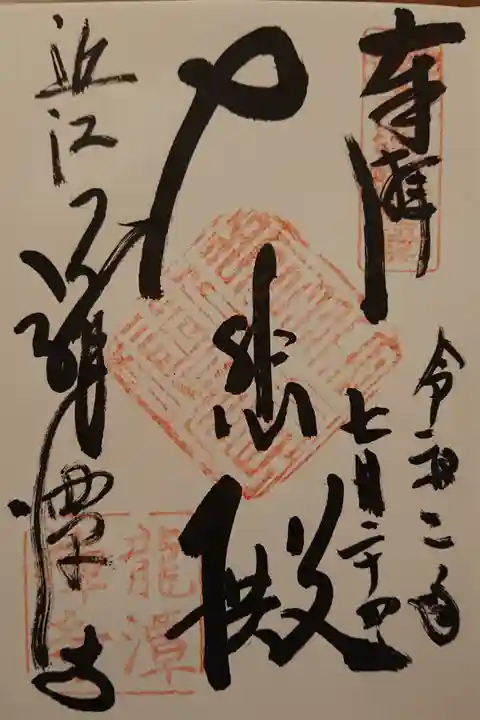 奉拝
令和二年
七月二十四日
大悲殿
近江 龍潭寺
龍潭
禅寺